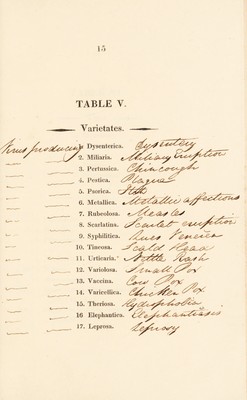 15
TABLE V.
Varietates.
Virus producing 1 Dysenterica. Dysentery
2. Miliaria. Miliary Eruption
3. Pertussica. Chincough
4. Pestica. Plague
5. Psorica. Itch
6. Metallica. Metallic affections
7. Rubeolosa. Measles
8. Scarlatina. Scarlet eruption
9. Syphilitica. Lues Venerea
10. Tineosa. Scald Head
11. Urticaria. Nettle Rash
12. Variolosa. Small Pox
13. Vaccina. Cow Pox
14. Varicellica. Chicken Pox
15. Theriosa. Hydrophobia
16 Elephantica. Elephantiasis
17. Leprosa. Leprosy